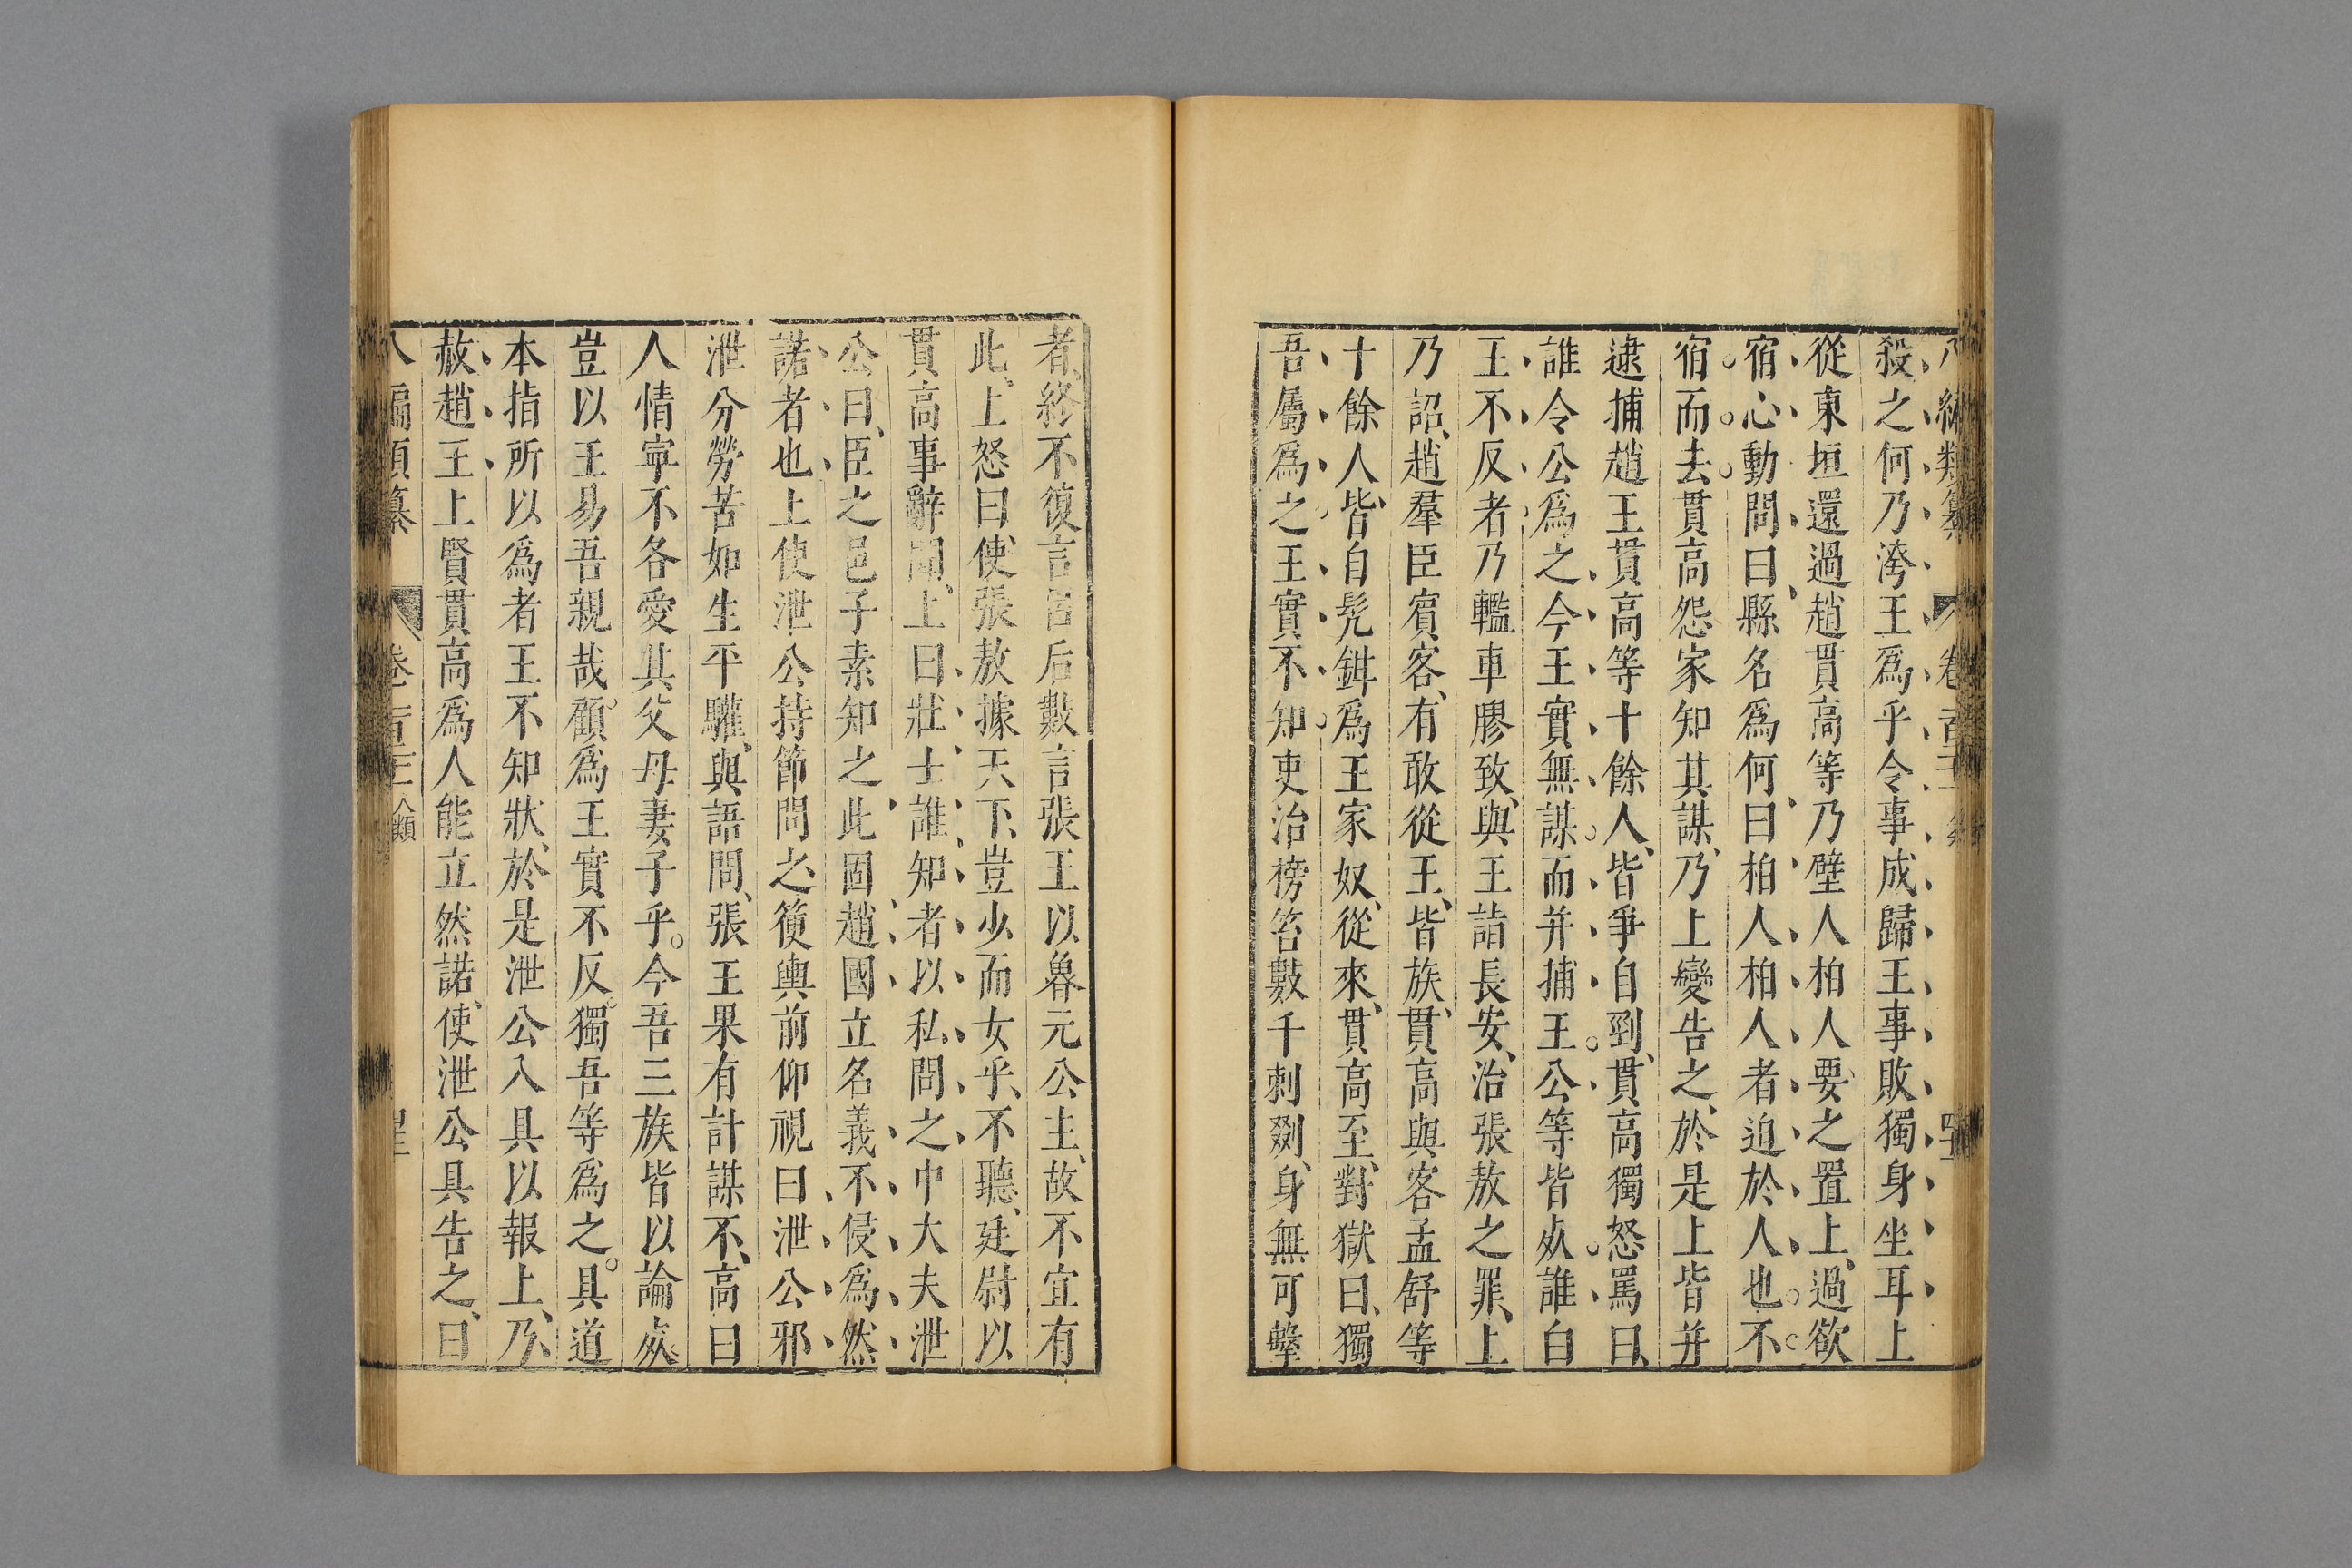 八編類纂 卷百十
殺之何乃洿王爲乎令事成歸王事敗獨身坐耳上
從東垣還過趙貫高等乃壁人柏人要之置上過欲
宿心動問曰縣名爲何曰柏人柏人者迫於人也不
宿而去貫高怨家知其謀乃上變告之於是上皆并
逮捕趙王貫高等十餘人皆爭自剄貫高獨怒罵曰
誰令公爲之今王實無謀而并捕王公等皆死誰白
王不反者乃轞車膠致與王詣長安治張敖之罪上
乃詔趙羣臣賓客有敢從王皆族貫高與客孟舒等
十餘人皆自髡鉗爲王家奴從來貫高至對獄曰獨
吾屬爲之王實不知吏治榜笞數千刺剟身無可擊
者終不復言呂后數言張王以魯元公主故不宜有
此上怒曰使張敖據天下豈少而女乎不聽廷尉以
貫高事辭聞上曰壯士誰知者以私問之中大夫泄
公曰臣之邑子素知之此固趙國立名義不侵爲然
諾者也上使泄公持節問之箯輿前仰視曰泄公邪
泄公勞苦如生平驩與語問張王果有計謀不高曰
人情寧不各愛其父母妻子乎今吾三族皆以論死
豈以王易吾親哉顧爲王實不反獨吾等爲之具道
本指所以爲者王不知狀於是泄公入具以報上乃
赦趙王上賢貫高爲人能立然諾使泄公具告之曰
八編類纂 卷百十 人類